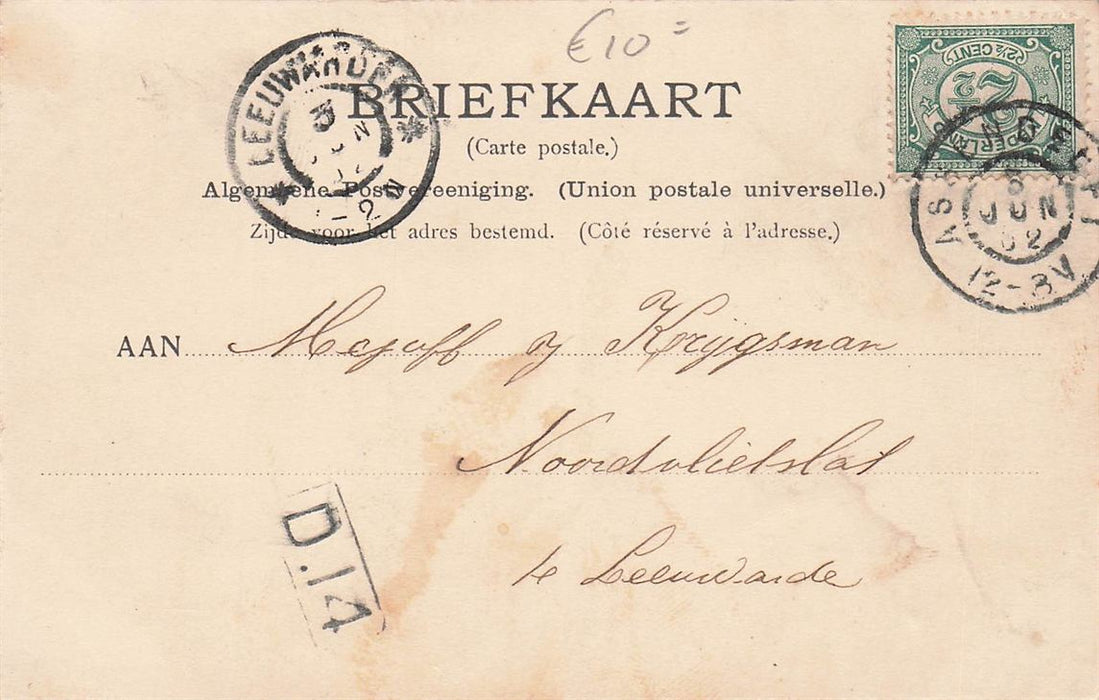 €10=
BRIEFKAART
(Carte postale.)
Algemeene Postvereeniging. (Union postale universelle.)
Zijde voor het adres bestemd. (Côté réservé à l'adresse.)
LEEUWARDEN
2½ CENT
2½
NEDERLAND
JUN
02
12-8V
AAN Mejuff Krijgsman
Noordvlietslat
te Leeuwarde
D.14